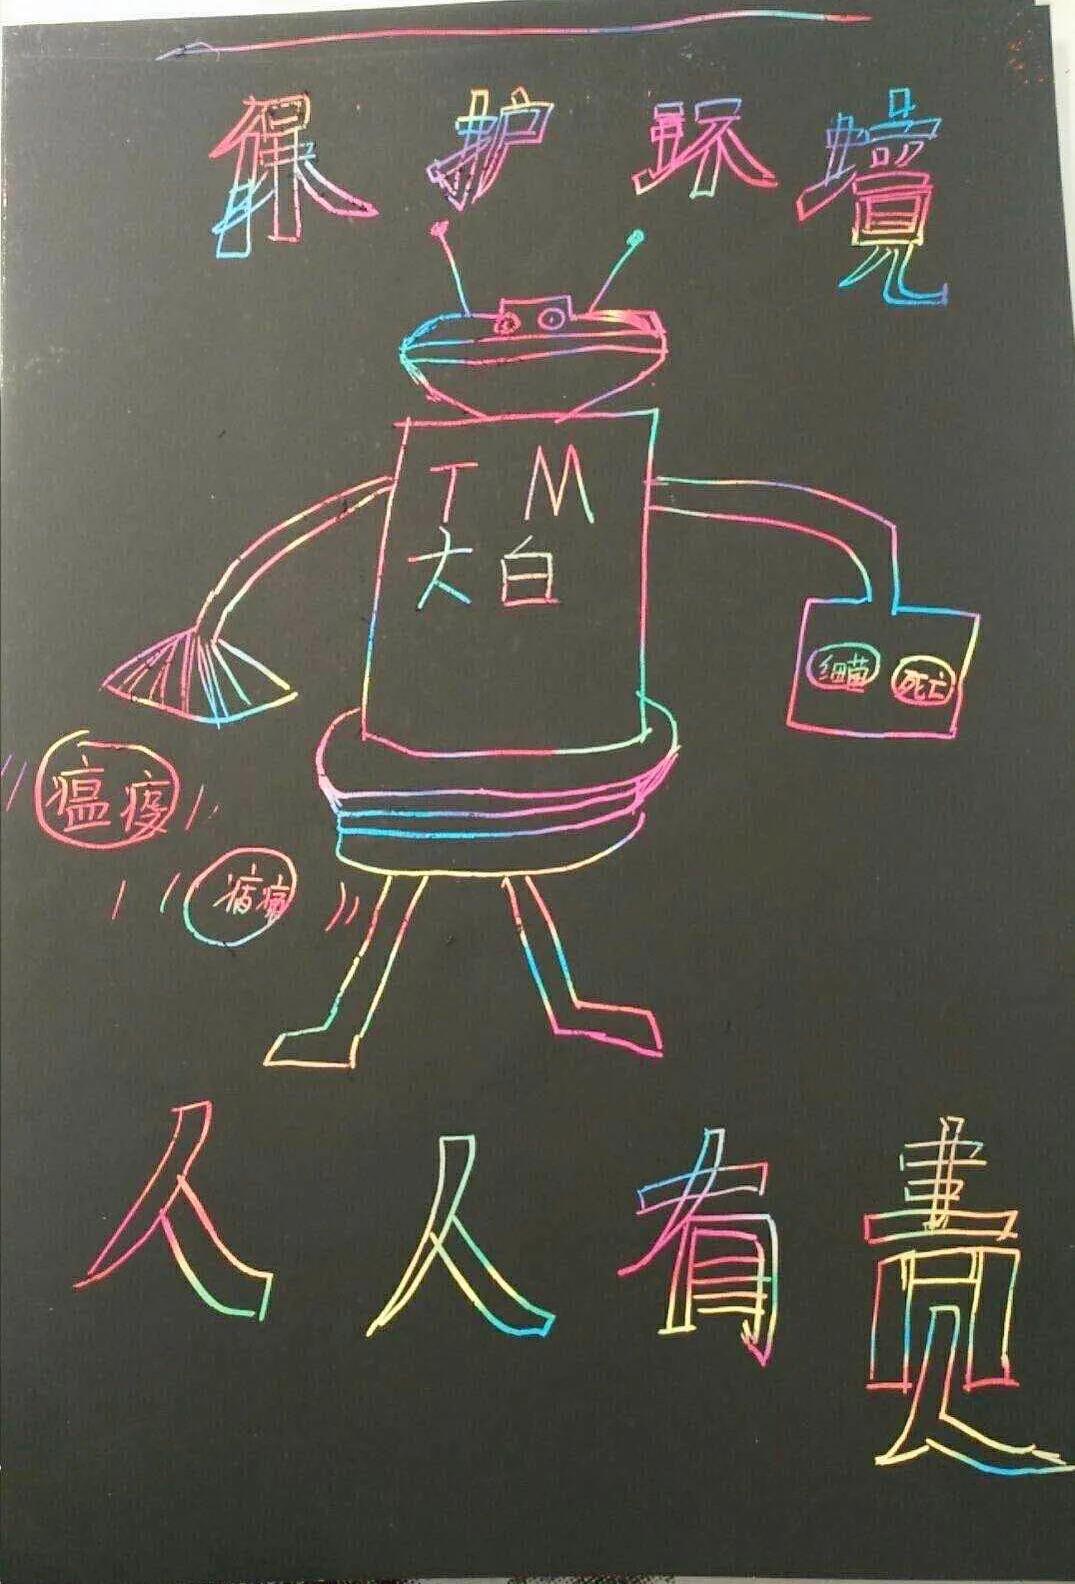 保护环境
T M
大白
细菌
死亡
瘟疫
人人有责